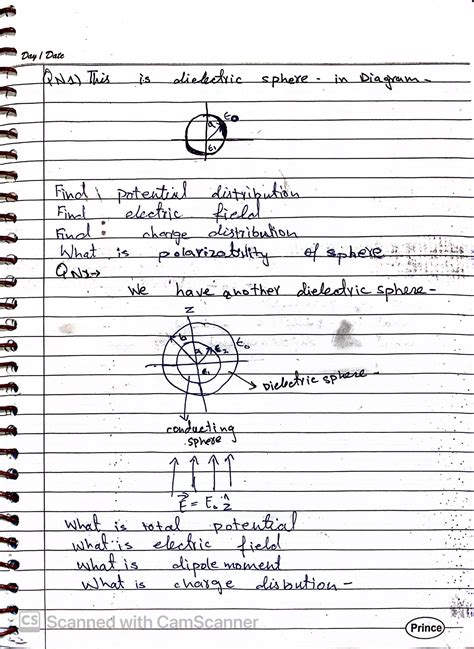 Day / Date
QNS) This is dielectric sphere - in Diagram -
a ε0
ε1
Find ; potential distribution
Find electric field
Find : charge distribution
What is polarizability of sphere
QNS→
We have another dielectric sphere -
Z
b a ε2 ε0
ε1
Dielectric sphere -
conducting
sphere
E⃗ = E₀ ẑ
What is total potential
What is electric field
What is dipole moment
What is charge disbution -
CS Scanned with CamScanner
Prince